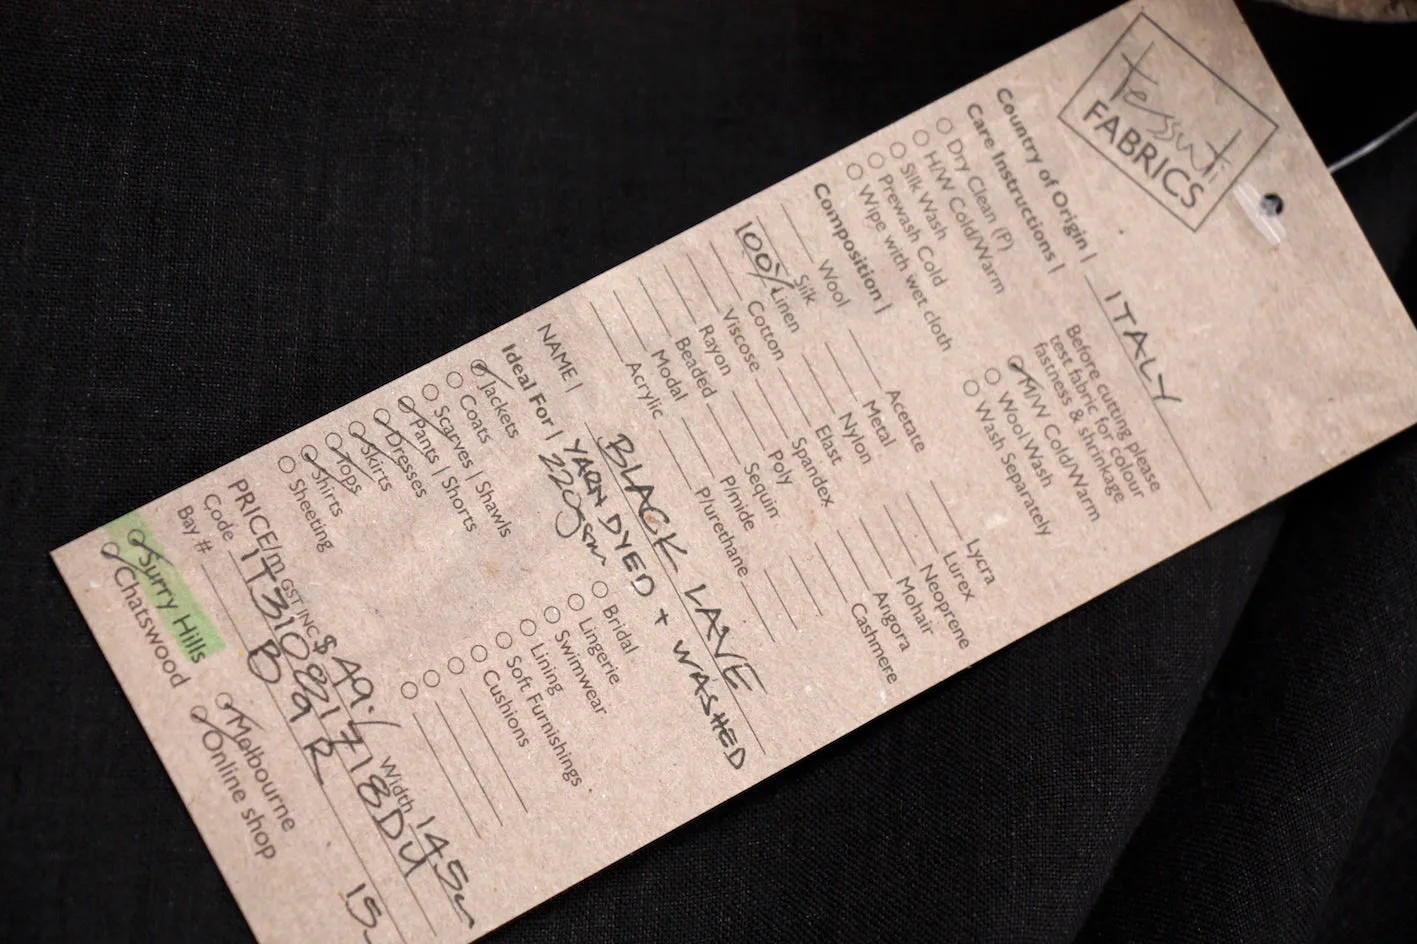 tessuti
FABRICS
Country of Origin | ITALY
Care Instructions |
Before cutting please
test fabric for colour
fastness & shrinkage
Dry Clean (P)
H/W Cold/Warm
Silk Wash
Prewash Cold
Wipe with wet cloth
M/W Cold/Warm
Wool Wash
Wash Separately
Composition |
Wool
Silk
100% Linen
Cotton
Viscose
Rayon
Beaded
Modal
Acrylic
Acetate
Metal
Nylon
Elast
Spandex
Poly
Sequin
P/mide
P/urethane
Lycra
Lurex
Neoprene
Mohair
Angora
Cashmere
NAME | BLACK LAVE
YARN DYED + WASHED
220gsm
Ideal For |
Jackets
Coats
Scarves | Shawls
Pants | Shorts
Dresses
Skirts
Tops
Shirts
Sheeting
Bridal
Lingerie
Swimwear
Lining
Soft Furnishings
Cushions
PRICE/m GST INC $ 49./ Width 145cm
Code
Bay #
Surry Hills
Chatswood
Melbourne
Online shop